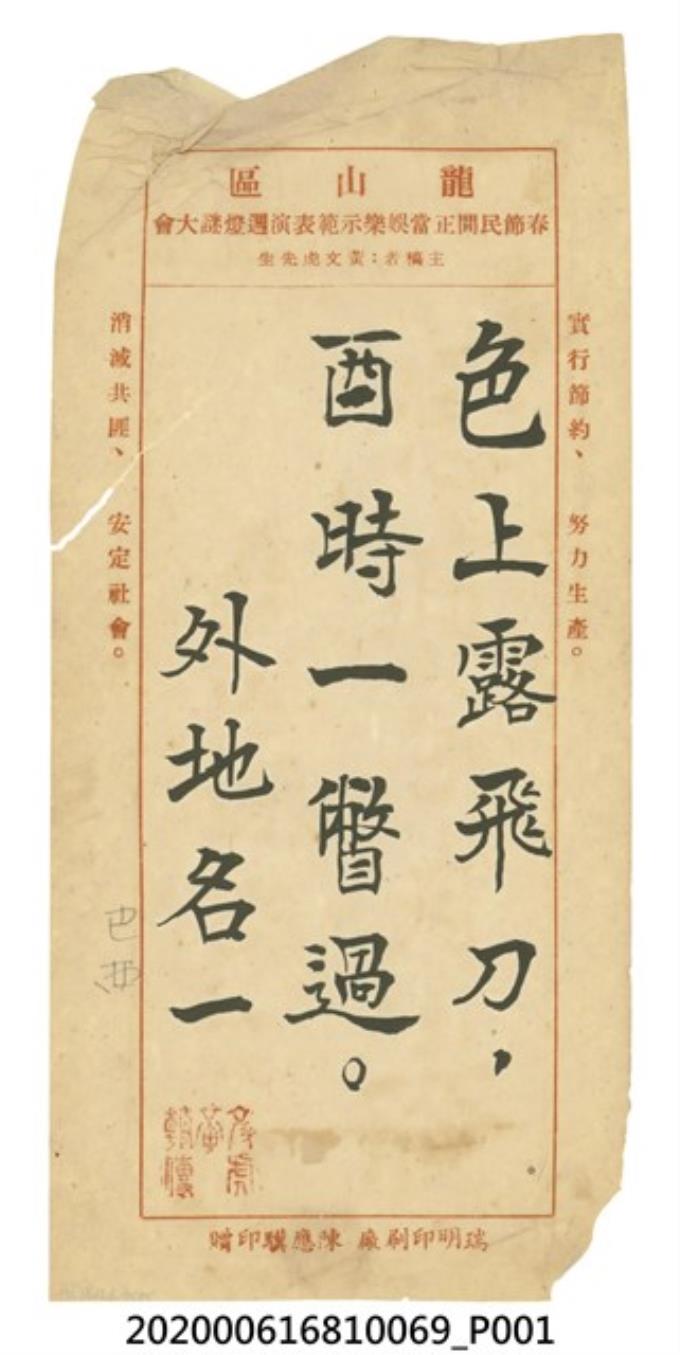 龍山區
春節民間正當娛樂示範表演週燈謎大會
主稿者：黃文虎先生
實行節約、努力生產。
色上露飛刀，
酉時一瞥過。
外地名一
消滅共匪、安定社會。
巴西
瑞明印刷廠 陳應騏印贈
202000616810069_P001